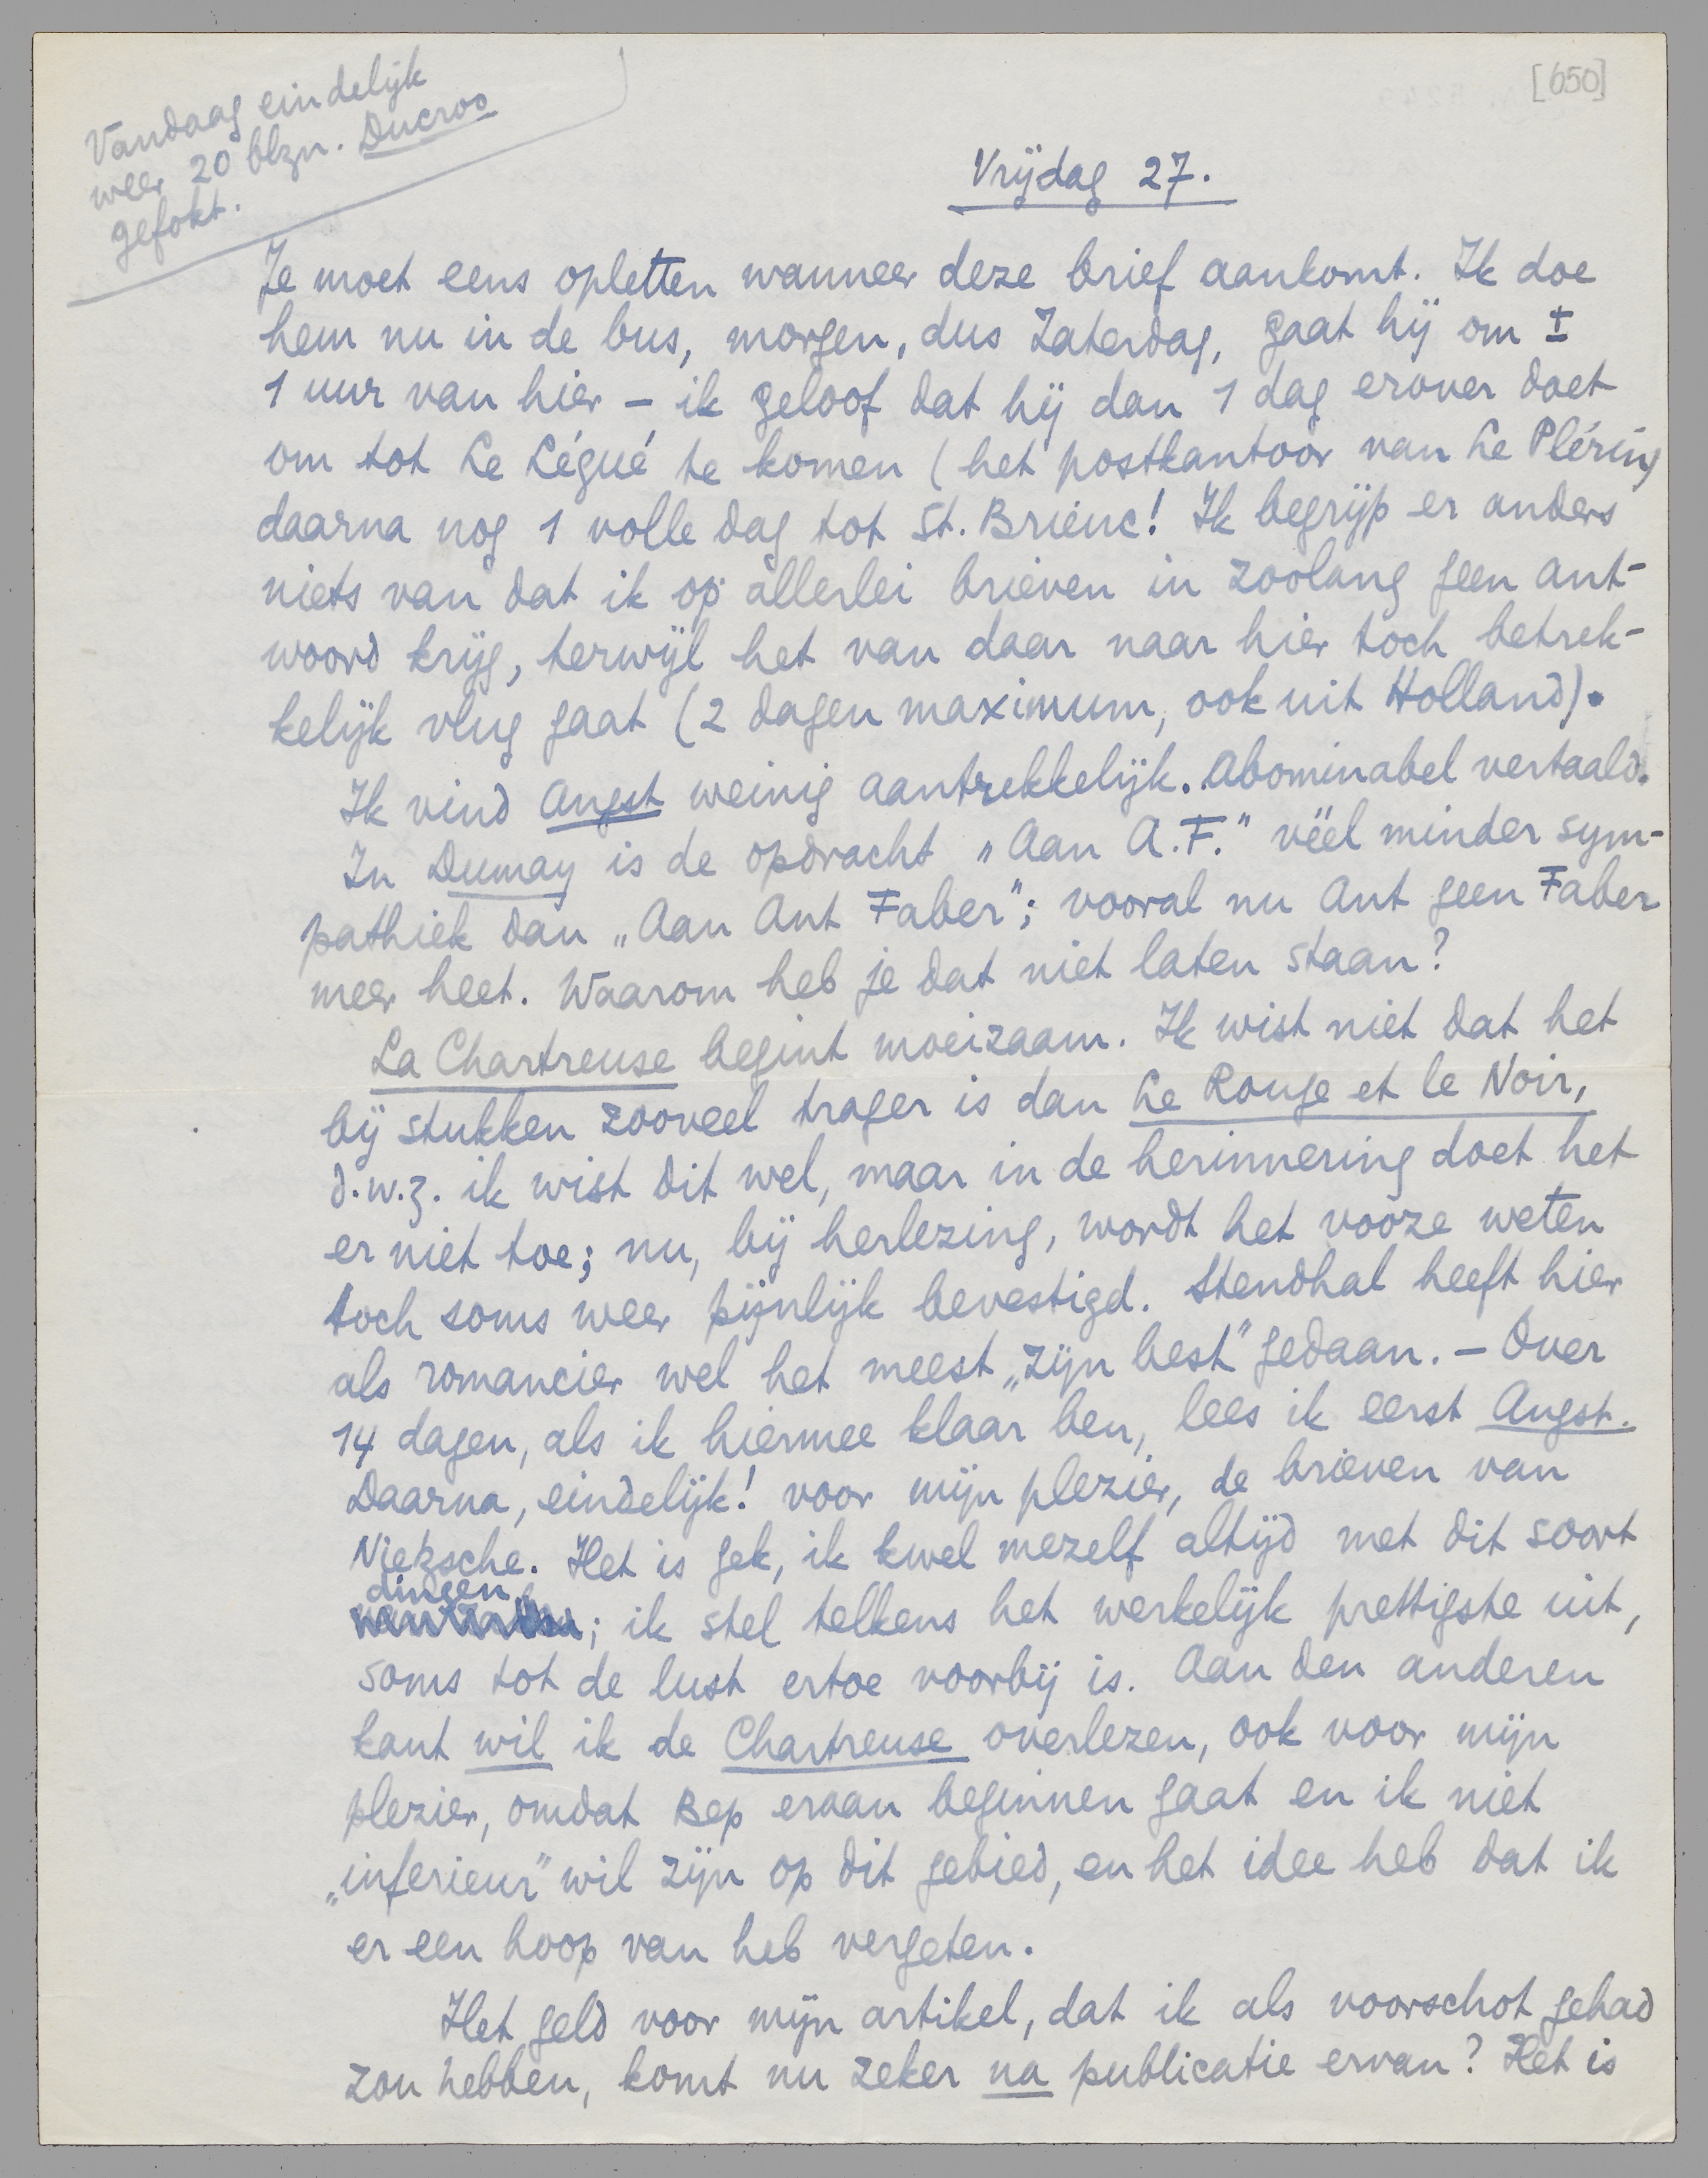 [650]
Vandaag eindelijk
weer 20 blzn. Ducroo
gefokt.
Vrijdag 27.
Je moet eens opletten wanneer deze brief aankomt. Ik doe
hem nu in de bus, morgen, dus Zaterdag, gaat hij om ±
1 uur van hier – ik geloof dat hij dan 1 dag erover doet
om tot Le Légué te komen (het postkantoor van Le Plérin,
daarna nog 1 volle dag tot St. Brieuc! Ik begrijp er anders
niets van dat ik op allerlei brieven in zoolang geen ant-
woord krijg, terwijl het van daar naar hier toch betrek-
kelijk vlug gaat (2 dagen maximum, ook uit Holland).
Ik vind Angst weinig aantrekkelijk. Abominabel vertaald.
In Dumay is de opdracht „Aan A.F." véél minder sym-
pathiek dan „Aan Ant Faber"; vooral nu Ant geen Faber
meer heet. Waarom heb je dat niet laten staan?
La Chartreuse begint moeizaam. Ik wist niet dat het
bij stukken zooveel trager is dan Le Rouge et le Noir,
d.w.z. ik wist dit wel, maar in de herinnering doet het
er niet toe; nu, bij herlezing, wordt het vooze weten
toch soms weer pijnlijk bevestigd. Stendhal heeft hier
als romancier wel het meest „zijn best" gedaan. – Over
14 dagen, als ik hiermee klaar ben, lees ik eerst Angst.
Daarna, eindelijk! voor mijn plezier, de brieven van
Nietzsche. Het is gek, ik kwel mezelf altijd met dit soort
dingen; ik stel telkens het werkelijk prettigste uit,
soms tot de lust ertoe voorbij is. Aan den anderen
kant wil ik de Chartreuse overlezen, ook voor mijn
plezier, omdat Bep eraan beginnen gaat en ik niet
„inferieur" wil zijn op dit gebied, en het idee heb dat ik
er een hoop van heb vergeten.
Het geld voor mijn artikel, dat ik als voorschot gehad
zou hebben, komt nu zeker na publicatie ervan? Het is